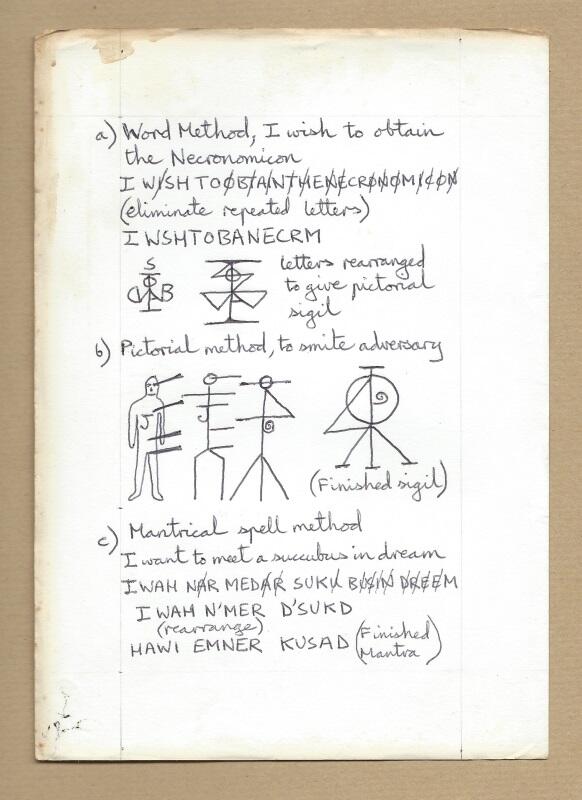 a) Word Method, I wish to obtain
the Necronomicon
I WISH TO OBTAIN THE NECRONOMICON
(eliminate repeated letters)
I WSHTOBANECRM
letters rearranged
to give pictorial
sigil
b) Pictorial method, to smite adversary
(Finished sigil)
c) Mantrical spell method
I want to meet a succubus in dream
I WAH NAR MEDAR SUKU BUSIN DREEM
I WAH N'MER D'SUKD
(rearrange)
HAWI EMNER KUSAD (Finished
Mantra)